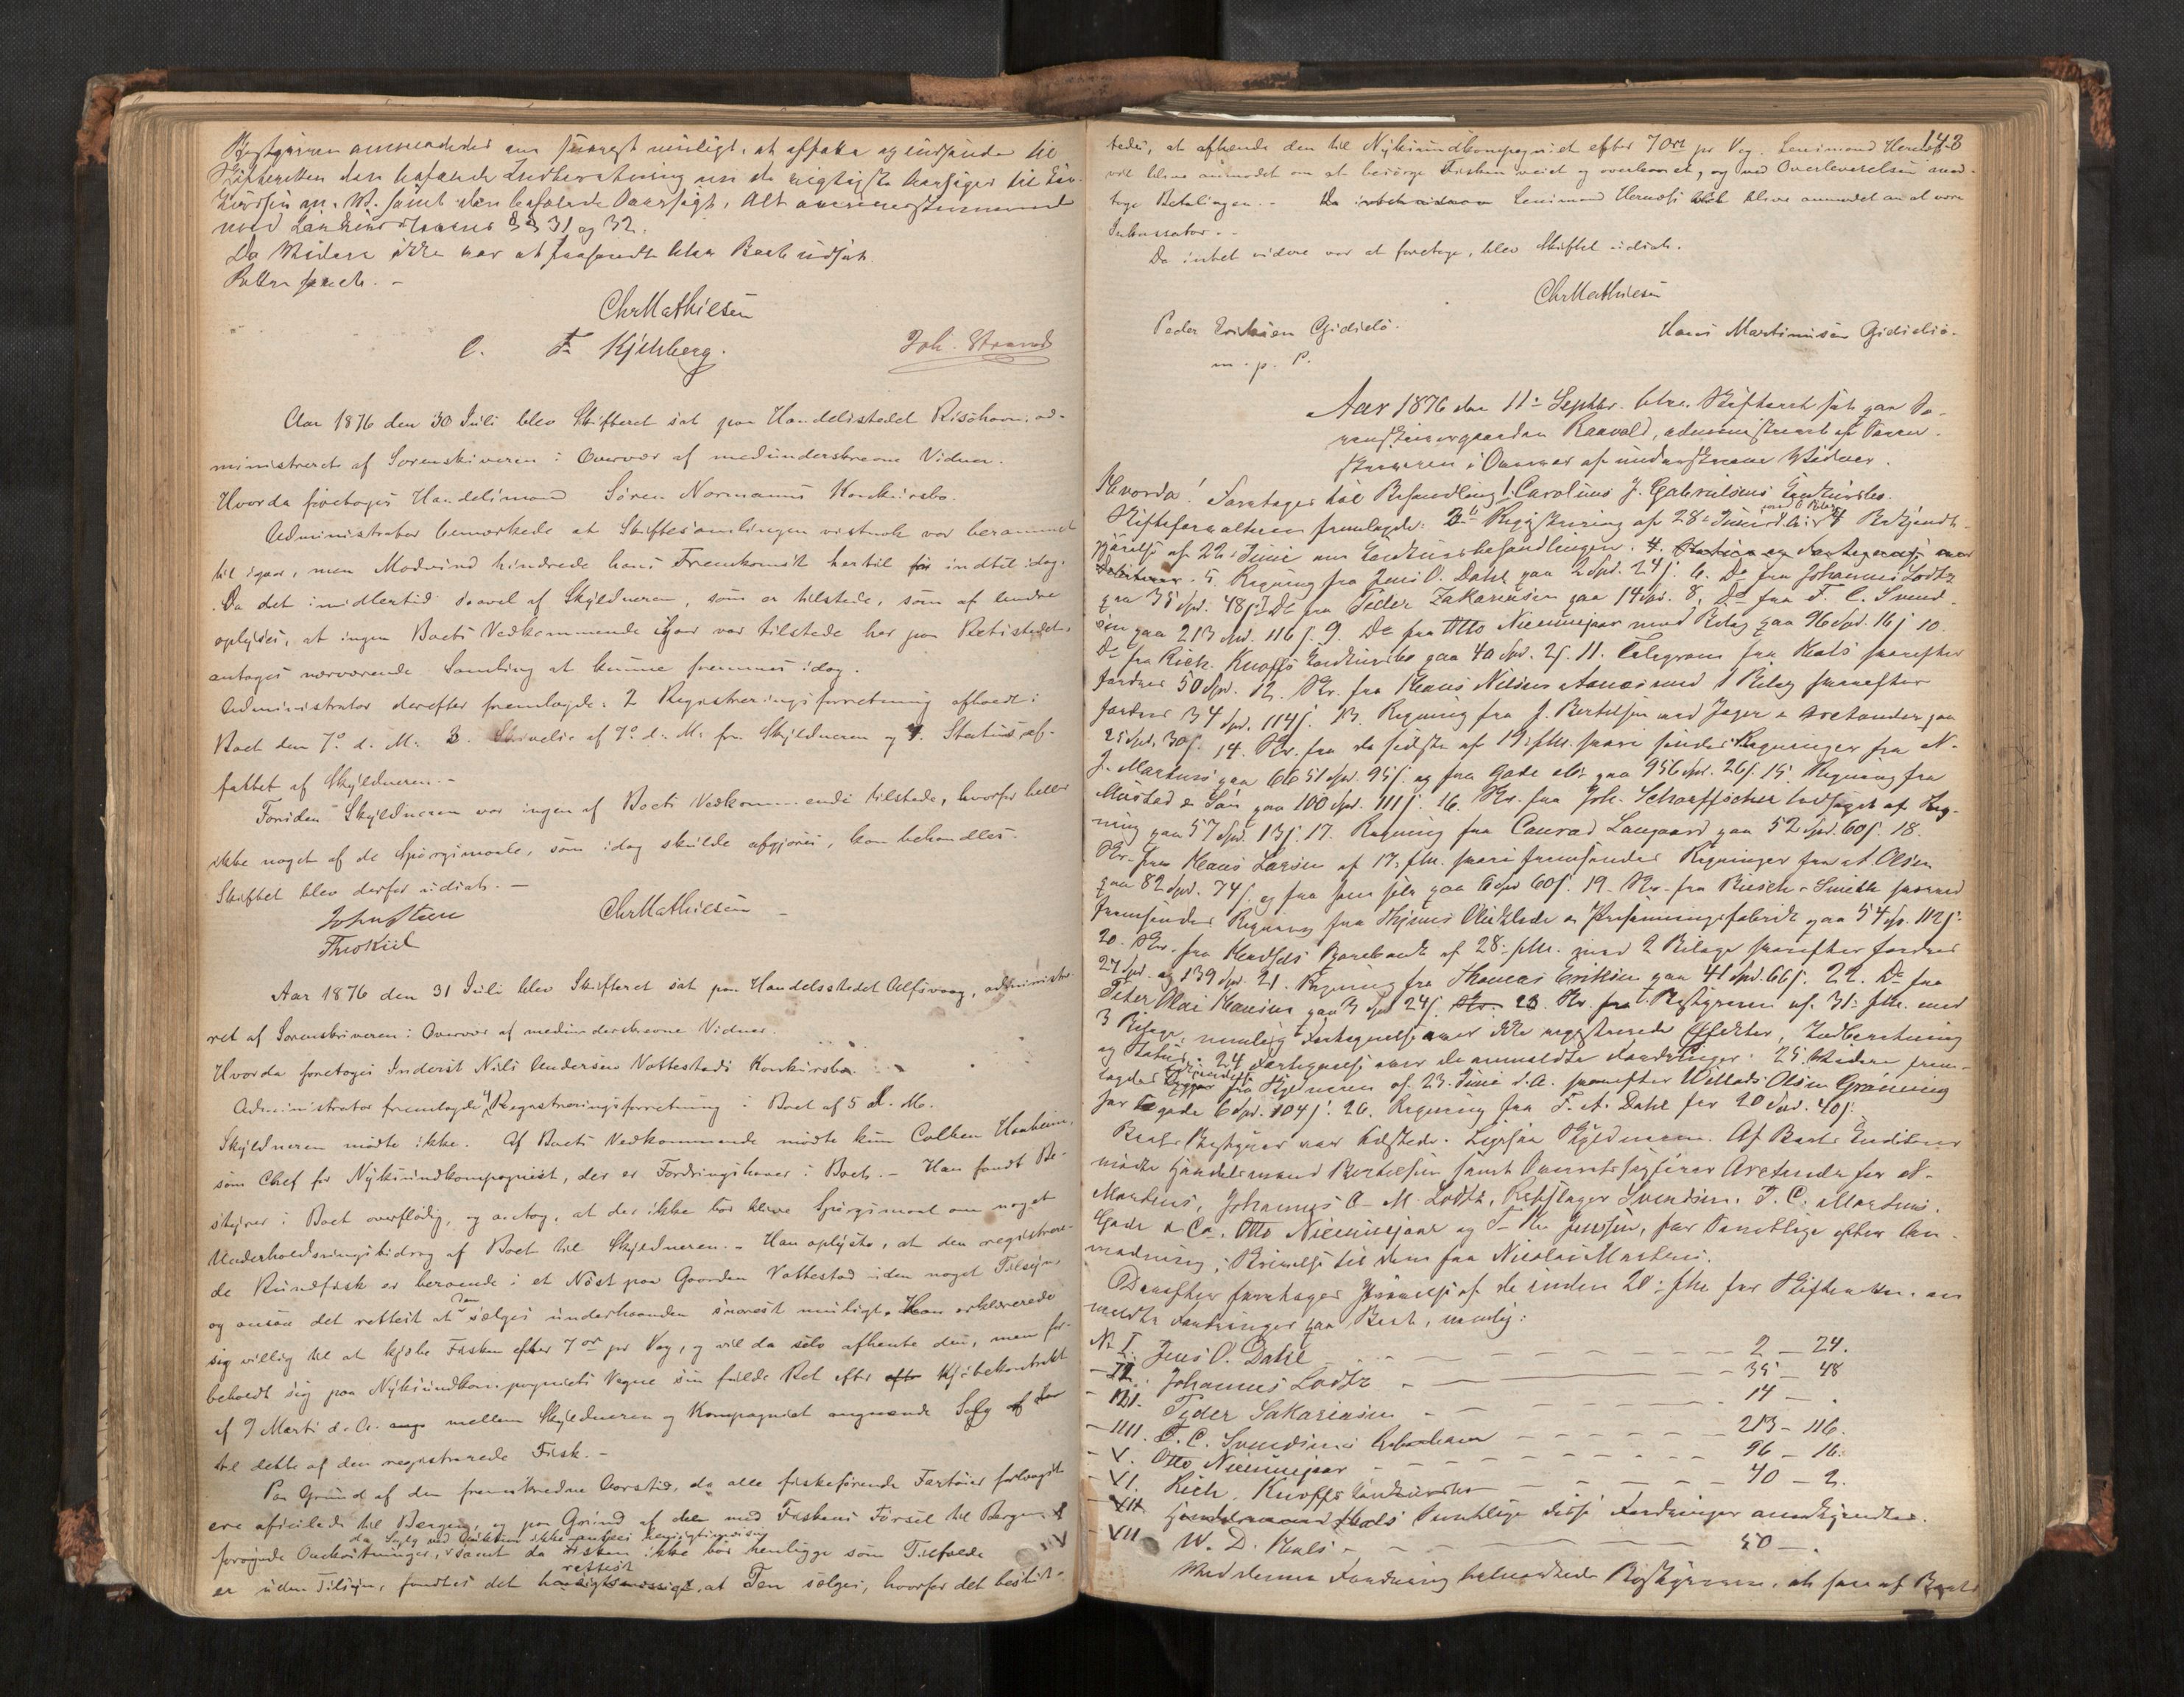 Bestyreren anmodedes om snarest muligt, at affatte og indsende til
Skifteretten den befalede Indberetning om de vigtigste Aarsager til Kon-
kursen m. V. samt den befalede Oversigt, Alt overensstemmende
med Konkurslovens §§ 31 og 32.
Da Videre ikke var at foretage blev Boet udsat.
Retten hævet. -
Chr Mathiesen
C. F. Kjelsberg.
Joh. Strand
Aar 1876 den 30 Juli blev Skifteret sat paa Handelsstedet Risöhavn, ad-
ministreret af Sorenskriveren i Overvær af medunderskrevne Vidner.
Hvorda foretoges Handelsmand Sören Normanns Konkursbo.
Administrator bemærkede at Skiftesamlingen vistnok var berammet
til igaar, men Modvind hindrede hans Fremkomst hertil för indtil idag.
Da det imidlertid saavel af Skyldneren, som er tilstede, som af Andre
oplyses, at ingen Boets Vedkommende igaar var tilstede her paa Retsstedet,
antages nærværende Samling at kunne fremmes idag.
Administrator derefter fremlagde: 2 Registreringsforretning afholdt i
Boet den 7de d. M. 3. Skrivelse af 7de d. M. fra Skyldneren og 4. Status, af-
fattet af Skyldneren. -
Foruden Skyldneren var ingen af Boets Vedkommende tilstede, hvorfor heller
ikke noget af de Spörgsmaale, som idag skulde afgjöres, kan behandles.
Skiftet blev derfor udsat. -
John Steen
Chr Mathiesen -
Th Rokiil
Aar 1876 den 31 Juli blev Skifteret sat paa Handelsstedet Alfsvaag, administre-
ret af Sorenskriveren i Overvær af medunderskrevne Vidner.
Hvorda foretoges Inderst Nils Andersen Vottestads Konkursbo.
Administrator fremlagde 4 Registreringsforretning i Boet af 5 d. M.
Skyldneren mödte ikke. Af Boets Vedkommende mödte kun Colben Haaheim,
som Chef for Nyksundkompagniet, der er Fordringshaver i Boet. - Han fandt Be-
styrer i Boet overflödig, og antog, at der ikke bör blive Spörgsmaal om noget
Underholdningsbidrag af Boet til Skyldneren. - Han oplyste, at den registrere-
de Rundfisk er beroende i et Nöst paa Gaarden Vottestad uden noget Tilsyn,
og ansaa det rettest at den sælges underhaanden snarest muligt. Han erklærede
sig villig til at kjöbe Fisken efter 7 ort pr Vog, og vil da selv afhente den, men for-
beholdt sig paa Nyksundkompagniets Vegne sin fulde Ret efter Kjöbekontrakt
af 9 Marts d. A. mellem Skyldneren og Kompagniet angaaende Salg
til dette af den registrerede Fisk. -
Paa Grund af den fremskredne Aarstid, da alle fiskeförende Fartöier forlængst
ere afseilede til Bergen, og paa Grund af med Fiskens Försel til Bergen
da Salg ved Auktion ikke ansees hensigtsmæssig
forögede Omkostninger, samt da Fisken ikke bör henligge som Tilfældet
rettest
er uden Tilsyn, fandtes det hensigtsmæssigst, at Den sælges, hvorfor det beslut-
143
tedes, at afhende den til Nyksundkompagniet efter 7 Ort pr Vog. Lensmand
vil blive anmodet om at besörge Fisken veiet og overleveret, og ved Overleverelsen mod-
tage Betalingen. - Da Lensmand blive anmodet om at være
Inkassator. -
Da intet videre var at foretage, blev Skiftet udsat.
Chr Mathiesen
Peder Eriksen Gjidsö.
m. p. P.
Hans Martinusen Gjidsö.
Aar 1876 den 11te Septbr. blev Skifteret sat paa So-
renskrivergaarden Kaavold, administreret af Soren-
skriveren i Overvær af underskrevne Vidner.
Hvorda! Foretages til Behandling Carolius J. Gabrielsens Konkursbo.
Skifteforvalteren fremlagde: 2de Registrering af 28de Juni d. A. Bekjendt-
gjörelse af 22 Juni om Konkursbehandlingen. 4.
5. Regning fra Jens O. Dahl paa 2 Spd. 24 s. 6. Do fra Johannes Lodtz
paa 35 Spd. 48 s. 7 Do fra Peder Zakariasen paa 14 Spd. 8. Do fra F. C. Svend-
sen paa 213 Spd. 116 s. 9. Do fra Otto Nicumejaar med Bilag paa 96 Spd. 16 s 10.
Do fra Rich. Knoffs Konkursbo paa 40 Spd. 2 s. 11. Telegram fra Kools hvorefter
fordres 50 Spd. 12. Skr. fra Hans Nilsen Aanes med 1 Bilag hvorefter
fordres 34 Spd. 114 s. 13. Regning fra J. Bertelsen med paa
25 Spd. 30 s. 14. Skr. fra de sidste af 19 f.M. hvori sendes Regninger fra N.
J. Martens paa 6651 Spd. 95 s. og fra Gade paa 956 Spd. 26 s. 15. Regning fra
Mustad & Sön paa 100 Spd. 111 s. 16. Skr. fra Joh. Scharffscher ledsaget af Reg-
ning paa 57 Spd. 13 s. 17. Regning fra Conrad Langaard paa 52 Spd. 60 s. 18.
Skr. fra Hans Larsen af 17. f.M. hvori fremsendes Regninger fra A. Olsen
paa 82 Spd. 74 s. og fra ham selv paa 6 Spd 60 s. 19. Skr. fra Riesch & Smith hvorved
fremsendes Regning fra paa 54 Sp. 112 s.
20. Skr. fra Sparebank af 28. f.M. med 2 Bilage hvorefter fordres
27 Spd. og 139 Spd. 21. Regning fra Thomas Eriksen paa 41 Spd. 66 s. 22. Do fra
Peter Olai Hansen paa 3 Spd 24 s. 23. Skr. fra Bestyreren af 31te f.M. med
3 Bilage, nemlig Fortegnelse over ikke registrerede Effekter, Indberetning
og Status. 24 Fortegnelse over de anmeldte Fordringer. 25. Videre frem-
lagdes fra Skyldneren af 23. Juni d. A. hvorefter Willads Olsen Grönning
har tilgode 6 Spd. 104 s. 26. Regning fra F. A. Dahl for 20 Spd. 40 s.
Boets Bestyrer var tilstede. Ligesaa Skyldneren. Af Boets Kreditorer
mödte Handelsmand Bertelsen samt Overretssagförer Arctander for N.
Martens, Johannes A. M. Lodtz, Rebslager Svendsen, J. C. Martens,
Gade & Co., Otto Nicumejaar og Jenssen, for Samtlige efter An-
modning i Skrivelse til dem fra Nicolai Martens.
Derefter foretoges Prövelse af de inden 20de f.M. for Skifteretten an-
meldte Fordringer paa Boet, nemlig:
No I. Jens O. Dahl - 2 - 24.
- II. Johannes Lodtz - 35 - 48
- III. Peder Sakariasen - 14 - .
- IIII. F. C. Svendsens - 213 - 116.
- V. Otto Nicumejaar - 96 - 16.
- VI. Rich. Knoffs Konkursbo - 40 - 2.
Samtlige disse Fordringer anerkjendtes.
- VII W. D. Kools - 50 - .
Mod denne Fordring bemærkede Bestyreren, at han af Boets